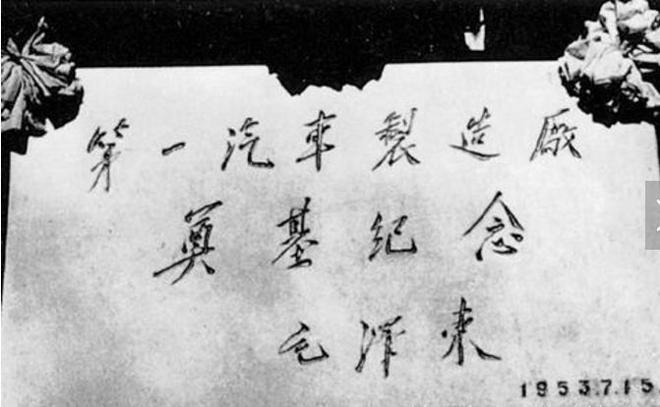 第一汽車製造廠
奠基紀念
毛澤東
1953.7.15